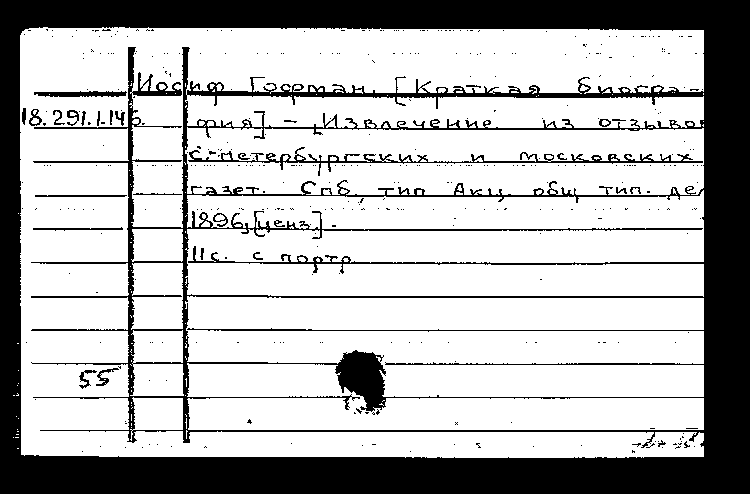 Иосиф Гофман. [Краткая биогра-
18.291.1.146. фия]. - Извлечение из отзывов
с.-петербургских и московских
газет. Спб, тип Акц. общ тип. дел
1896, [ценз.] -
11с. с портр
55